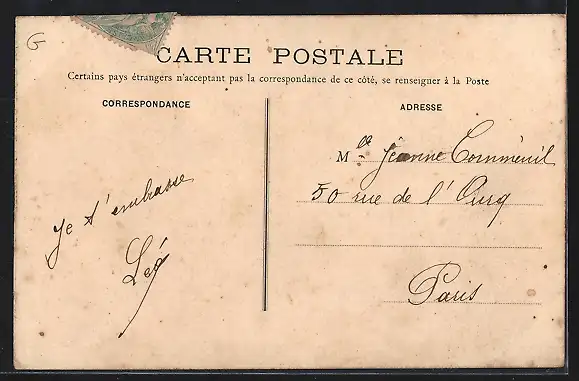 G
CARTE POSTALE
Certains pays étrangers n'acceptant pas la correspondance de ce côté, se renseigner à la Poste
CORRESPONDANCE
ADRESSE
Mlle Jeanne Corméniil
50 rue de l'Ourq
Paris
Je t'embrasse
Léo